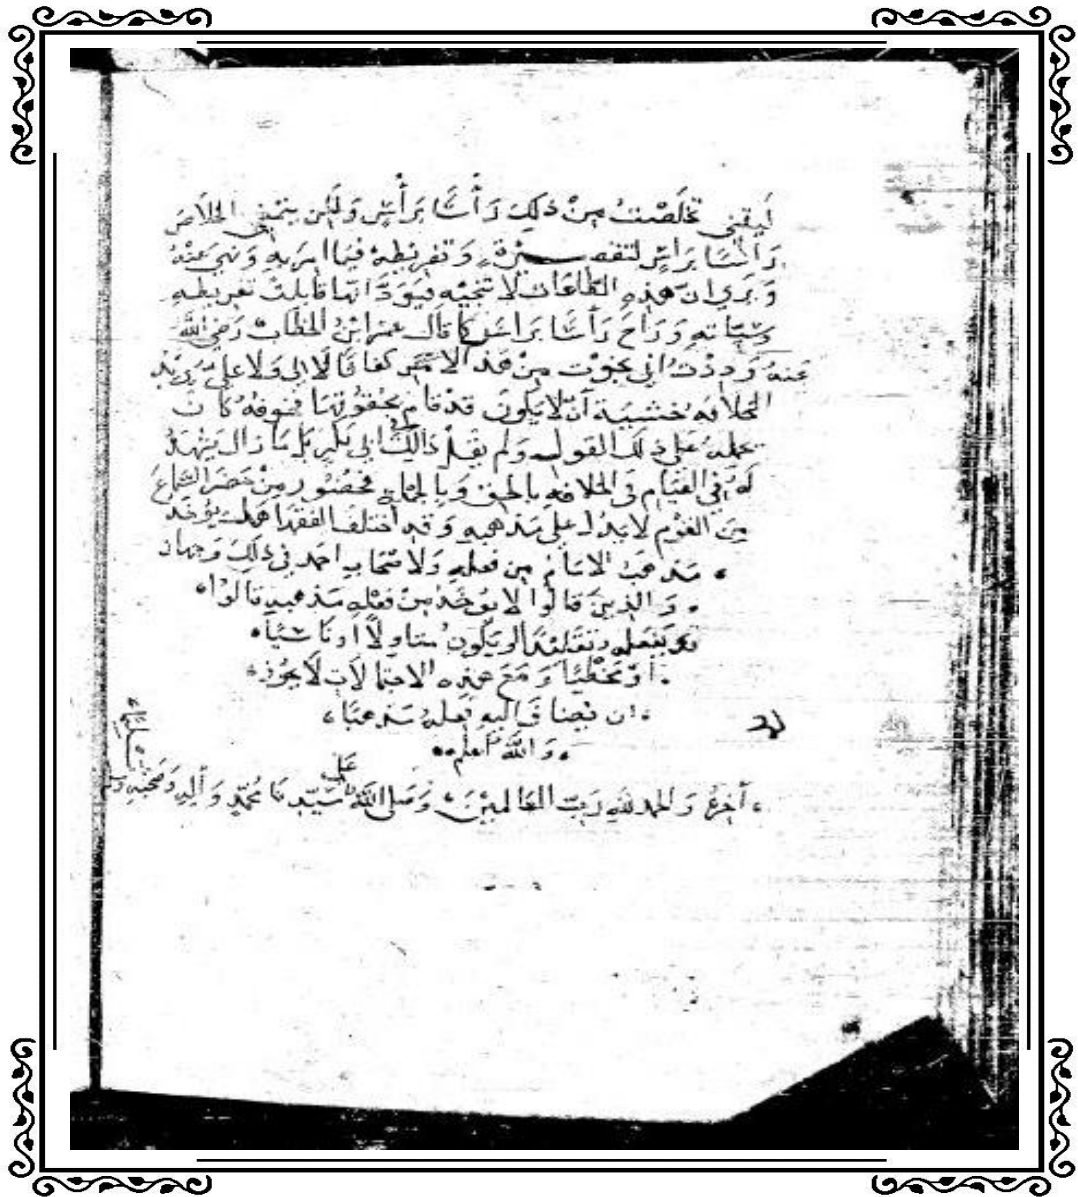 ليتني تخلصت من ذلك رأسا برأس ولئن يتمنى الخلاص
رأسا برأس لتقصيره وتفريطه فيما امر به ونهي عنه
ويرى ان هذه الطاعات لا تنجيه فيود انها قابلت تفريطه
سيئاته وراح رأسا براس كما قال عمر ابن الخطاب رضي الله
عنه وددت اني نجوت من هذا الامر كفافا لا لي ولا علي يريد
الخلافه خشية أن لا يكون قد قام بحقوقها فخوفه كان
يحمله على ذلك القول ولم يقل ذالك ابي بكر بل ما زال يشهد
له في القيام في الخلافه بالحق وبالجملة فحضور من حضر السماع
من القوم لا يدل على مذهبه وقد اختلف الفقهاء هل يؤخذ
مذهب الامام من فعله ولاصحاب احمد في ذلك وجهان
والذين قالوا لا يؤخذ من فعله مذهبه قالوا
قد يفعله تقليدا او يكون متاولا او ناسيا
او مخطيا ومع هذه الاحتمالات لا يجوز
ان يضاف اليه بفعله مذهبا
والله أعلم
أخره والحمد لله رب العالمين وصلى الله على سيدنا محمد وأله وصحبه وسلم